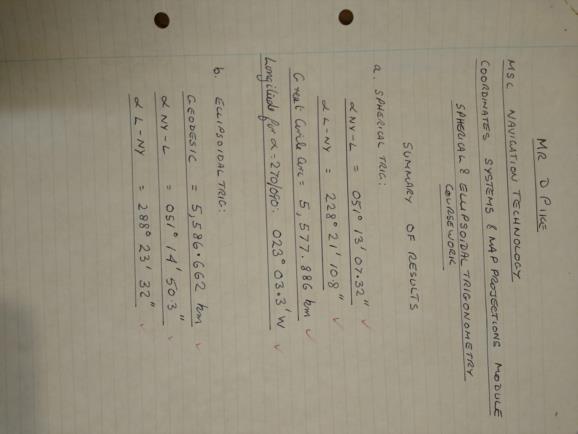 MR D PIKE
MSC NAVIGATION TECHNOLOGY
COORDINATES SYSTEMS & MAP PROJECTIONS MODULE
SPHERICAL & ELLIPSOIDAL TRIGONOMETRY
COURSEWORK
SUMMARY OF RESULTS
a. SPHERICAL TRIG:
α NY-L = 051° 13' 07.32" ✓
α L-NY = 228° 21' 10.8" ✓
Great Circle Arc = 5,577.886 km ✓
Longitude for α = 270/090: 023° 03.3' W ✓
b. ELLIPSOIDAL TRIG:
GEODESIC = 5,586.662 km ✓
α NY-L = 051° 14' 50.3" ✓
α L-NY = 288° 23' 32" ✓